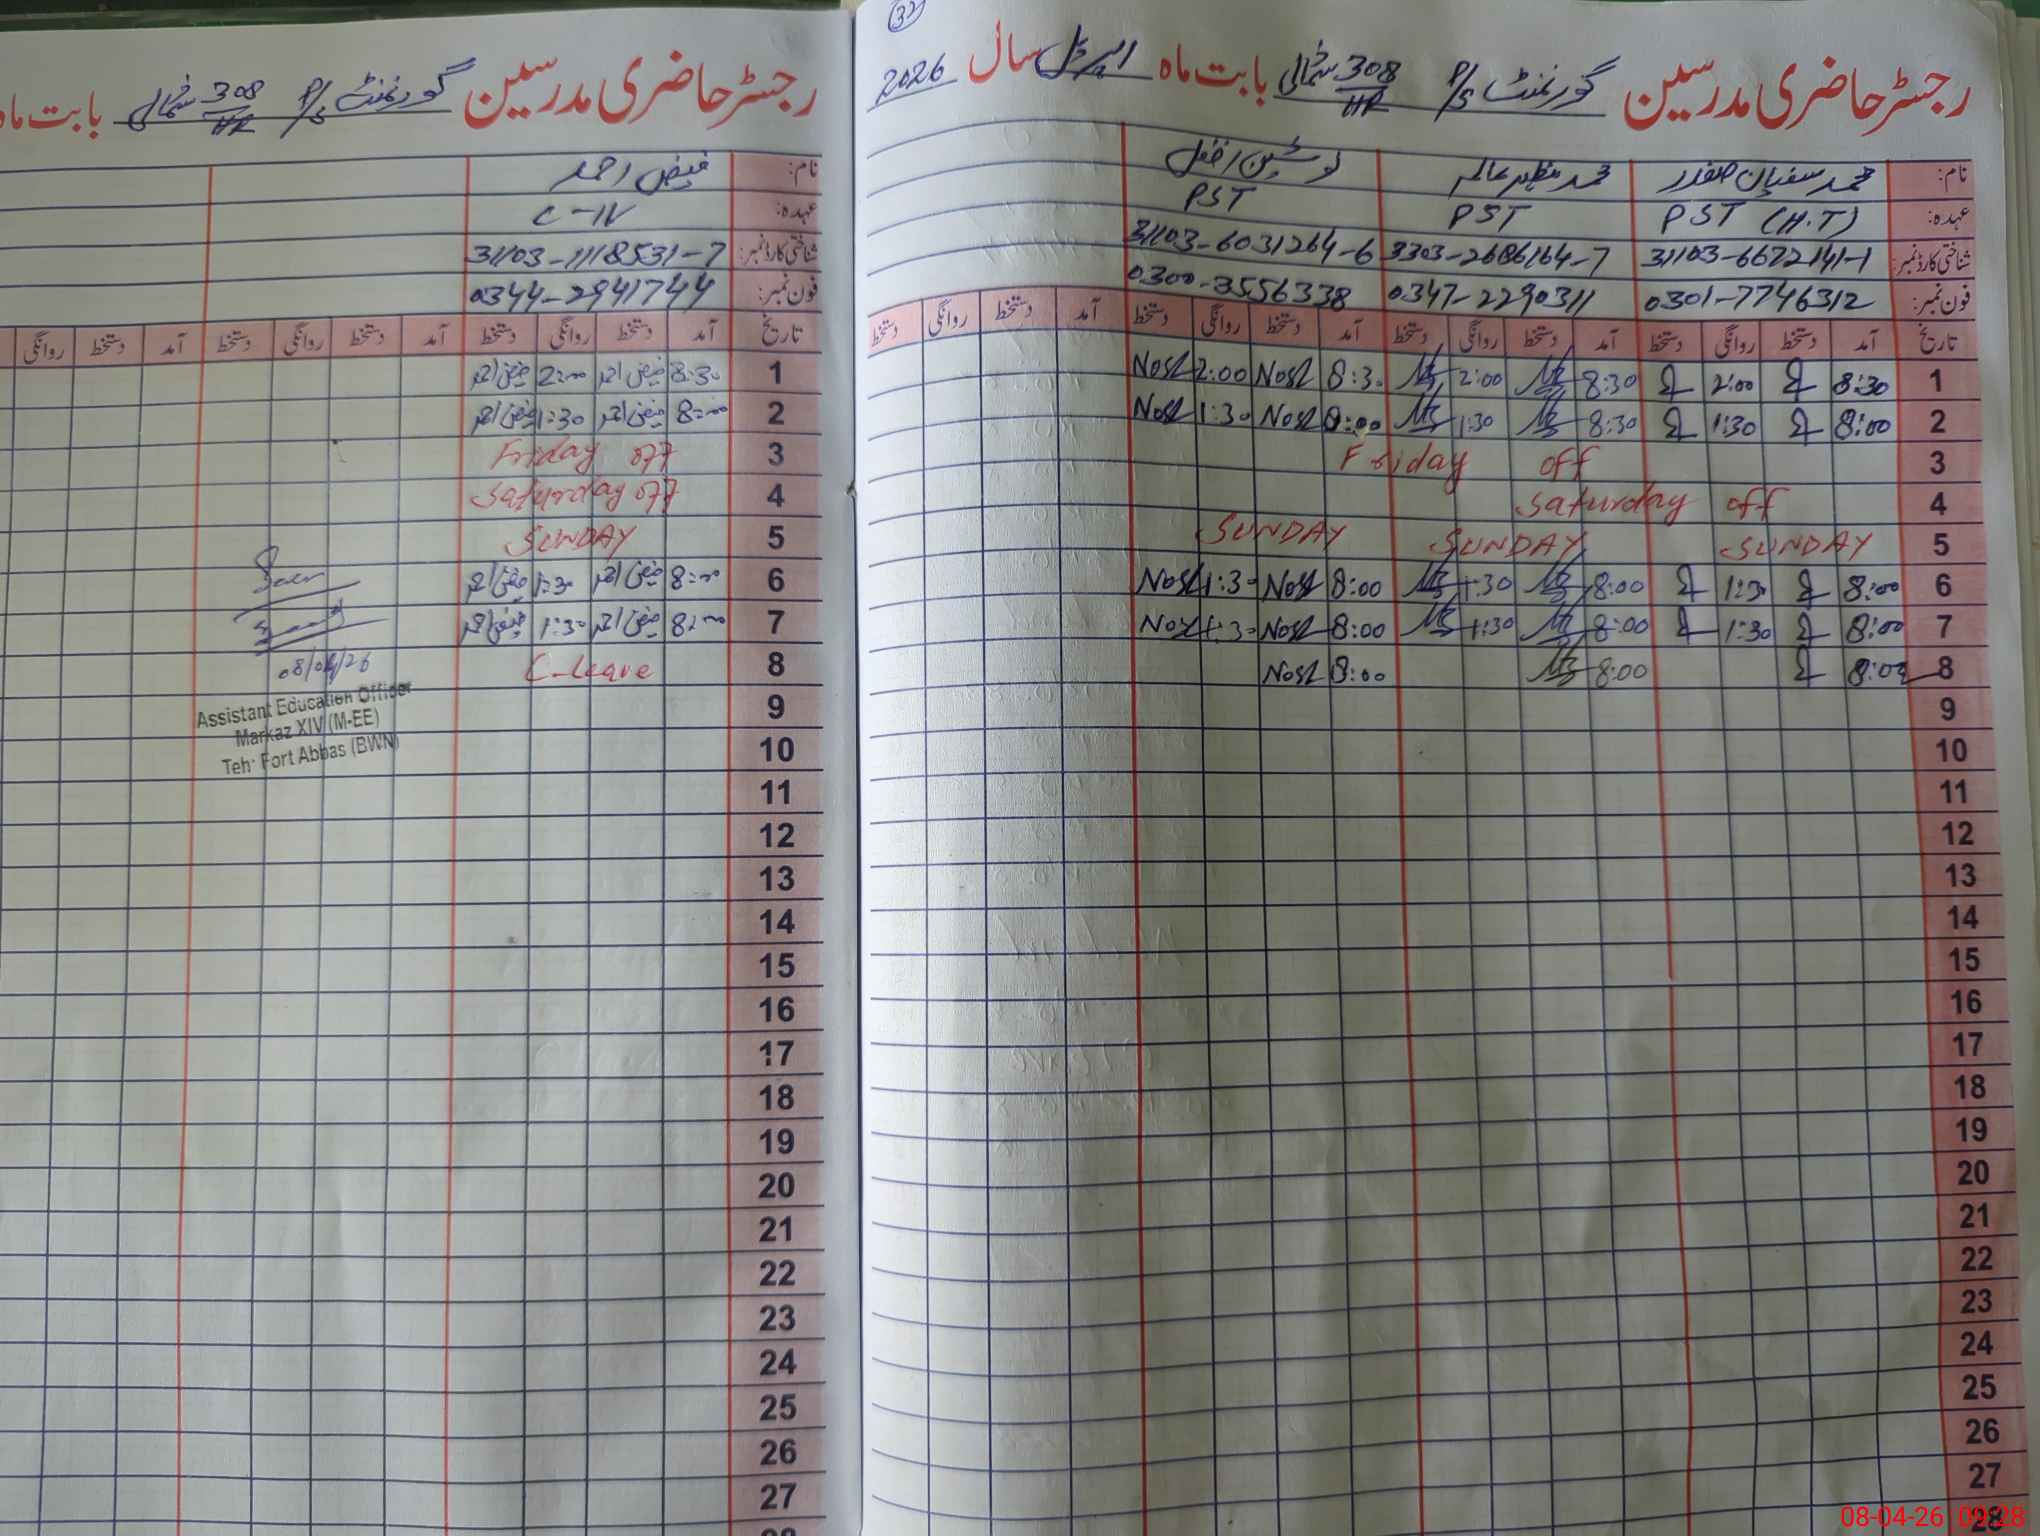 32
رجسٹر حاضری مدرسین گورنمنٹ P/S 308/HR شمالی بابت ماہ اپریل سال 2026
نام: محمد سفیان صفدر محمد مظہر عالم نوشین افضل
عہدہ: PST (H.T) PST PST
شناختی کارڈ نمبر: 31103-6622141-1 3303-2686164-7 31103-6031264-6
فون نمبر: 0301-7746312 0347-2290311 0300-3556338
تاریخ آمد دستخط روانگی دستخط آمد دستخط روانگی دستخط آمد دستخط روانگی دستخط آمد دستخط روانگی دستخط
1 8:30 2:00 8:30 2:00 8:30 Nosh 2:00 Nosh
2 8:00 1:30 8:30 1:30 8:00 Nosh 1:30 Nosh
3 Friday off
4 Saturday off
5 SUNDAY SUNDAY SUNDAY
6 8:00 1:30 8:00 1:30 8:00 Nosh 1:30 Nosh
7 8:00 1:30 8:00 1:30 8:00 Nosh 1:30 Nosh
8 8:00 8:00 8:00 Nosh
9
10
11
12
13
14
15
16
17
18
19
20
21
22
23
24
25
26
27
28
رجسٹر حاضری مدرسین گورنمنٹ P/S 308/HR شمالی بابت ماہ
نام: فیض احمد
عہدہ: C-IV
شناختی کارڈ نمبر: 31103-1118531-7
فون نمبر: 0344-2941744
تاریخ آمد دستخط روانگی دستخط آمد دستخط روانگی دستخط آمد دستخط روانگی
1 8:30 فیض احمد 2:00 فیض احمد
2 8:00 فیض احمد 1:30 فیض احمد
3 Friday off
4 Saturday off
5 SUNDAY
6 8:00 فیض احمد 1:30 فیض احمد
7 8:00 فیض احمد 1:30 فیض احمد
8 C-leave
9
10
11
12
13
14
15
16
17
18
19
20
21
22
23
24
25
26
27
28
08/04/26
Assistant Education Officer
Markaz XIV (M-EE)
Teh: Fort Abbas (BWN)
08-04-26 09:28